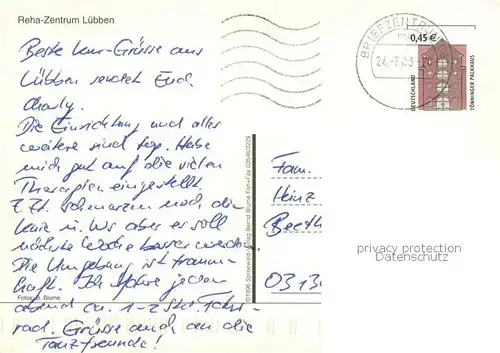 Reha-Zentrum Lübben
Beste Kur-Grüsse aus
Lübben sendet Euch
Charly.
Die Einrichtung und alles
weitere sind top. Habe
mich gut auf die vielen
Therapien eingestellt.
Z.Zt. schmerzen noch die
Knie u. Wo aber es soll
nächste Woche besser werden.
Die Umgebung ist traum-
haft. Ich fahre jeden
abend ca. 1-2 Std. Fahr-
rad. Grüsse auch an die
Tanzfreunde!
Fotos: B. Blume
©1996 Spreewald-Verlag Bernd Blume Fon+Fax 03546/3229
BRIEFZENTRUM
24.-7.03
0,45 €
DEUTSCHLAND
TÖNNINGER PACKHAUS
Fam.
Heinz
Beeth
0313
privacy protection
Datenschutz